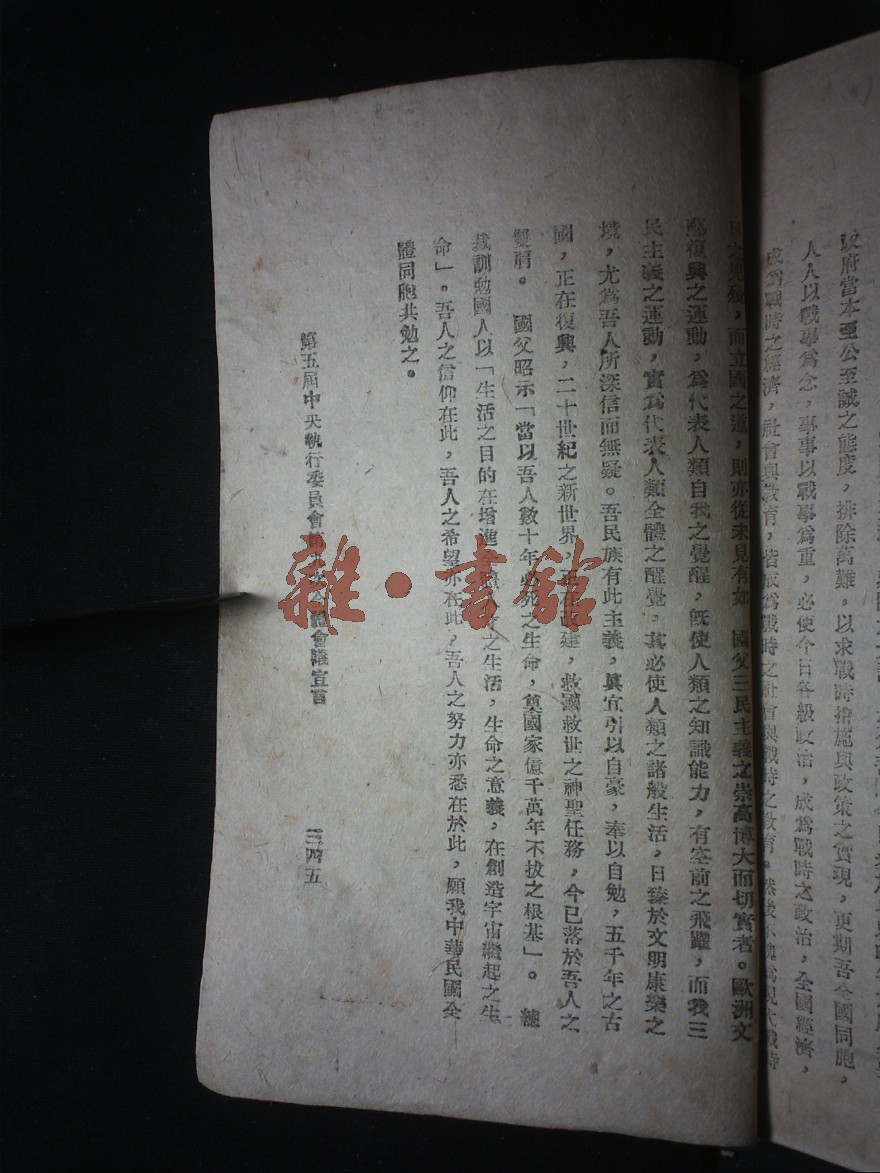 政府當本至公至誠之態度，排除萬難，以求戰時措施與政策之實現，更期吾全國同胞，
人人以戰事爲念，事事以戰事爲重，必使今日各級政治，成爲戰時之政治，全國經濟，
成爲戰時之經濟，社會與教育，皆成爲戰時之社會與戰時之教育。然後不愧爲現代戰時
而立國之道，則亦從未見有如　國父三民主義之崇高博大而切實者。歐洲文
藝復興之運動，爲代表人類自我之覺醒，旣使人類之知識能力，有空前之飛躍，而我三
民主義之運動，實爲代表人類全體之醒覺，其必使人類之諸般生活，日臻於文明康樂之
境，尤爲吾人所深信而無疑。吾民族有此主義，眞宜引以自豪，奉以自勉，五千年之古
國，正在復興，二十世紀之新世界，正在改建，救國救世之神聖任務，今已落於吾人之
雙肩。　國父昭示「當以吾人數十年必死之生命，奠國家億千萬年不拔之根基」。　總
裁訓勉國人以「生活之目的在增進全體人類之生活，生命之意義，在創造宇宙繼起之生
命」。吾人之信仰在此，吾人之希望亦在此，吾人之努力亦悉在於此，願我中華民國全
體同胞共勉之。
第五屆中央執行委員會第　次全體會議宣言
三四五
雜·書館